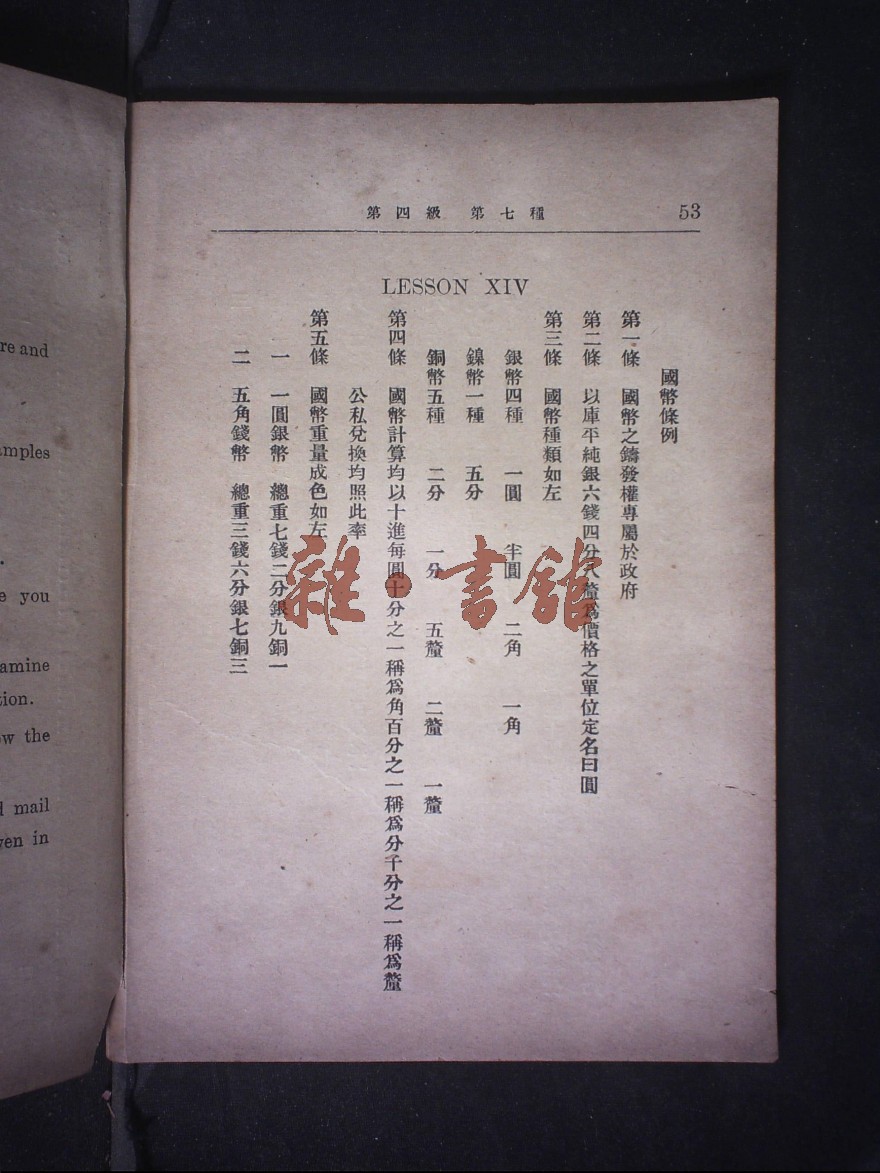 re and
amples
.
e you
amine
tion.
ow the
d mail
ven in
第四級 第七種 53
LESSON XIV
國幣條例
第一條 國幣之鑄發權專屬於政府
第二條 以庫平純銀六錢四分八釐爲價格之單位定名曰圓
第三條 國幣種類如左
銀幣四種 一圓 半圓 二角 一角
鎳幣一種 五分
銅幣五種 二分 一分 五釐 二釐 一釐
第四條 國幣計算均以十進每圓十分之一稱爲角百分之一稱爲分千分之一稱爲釐
公私兌換均照此率
第五條 國幣重量成色如左
一 一圓銀幣 總重七錢二分銀九銅一
二 五角錢幣 總重三錢六分銀七銅三
雜·書館